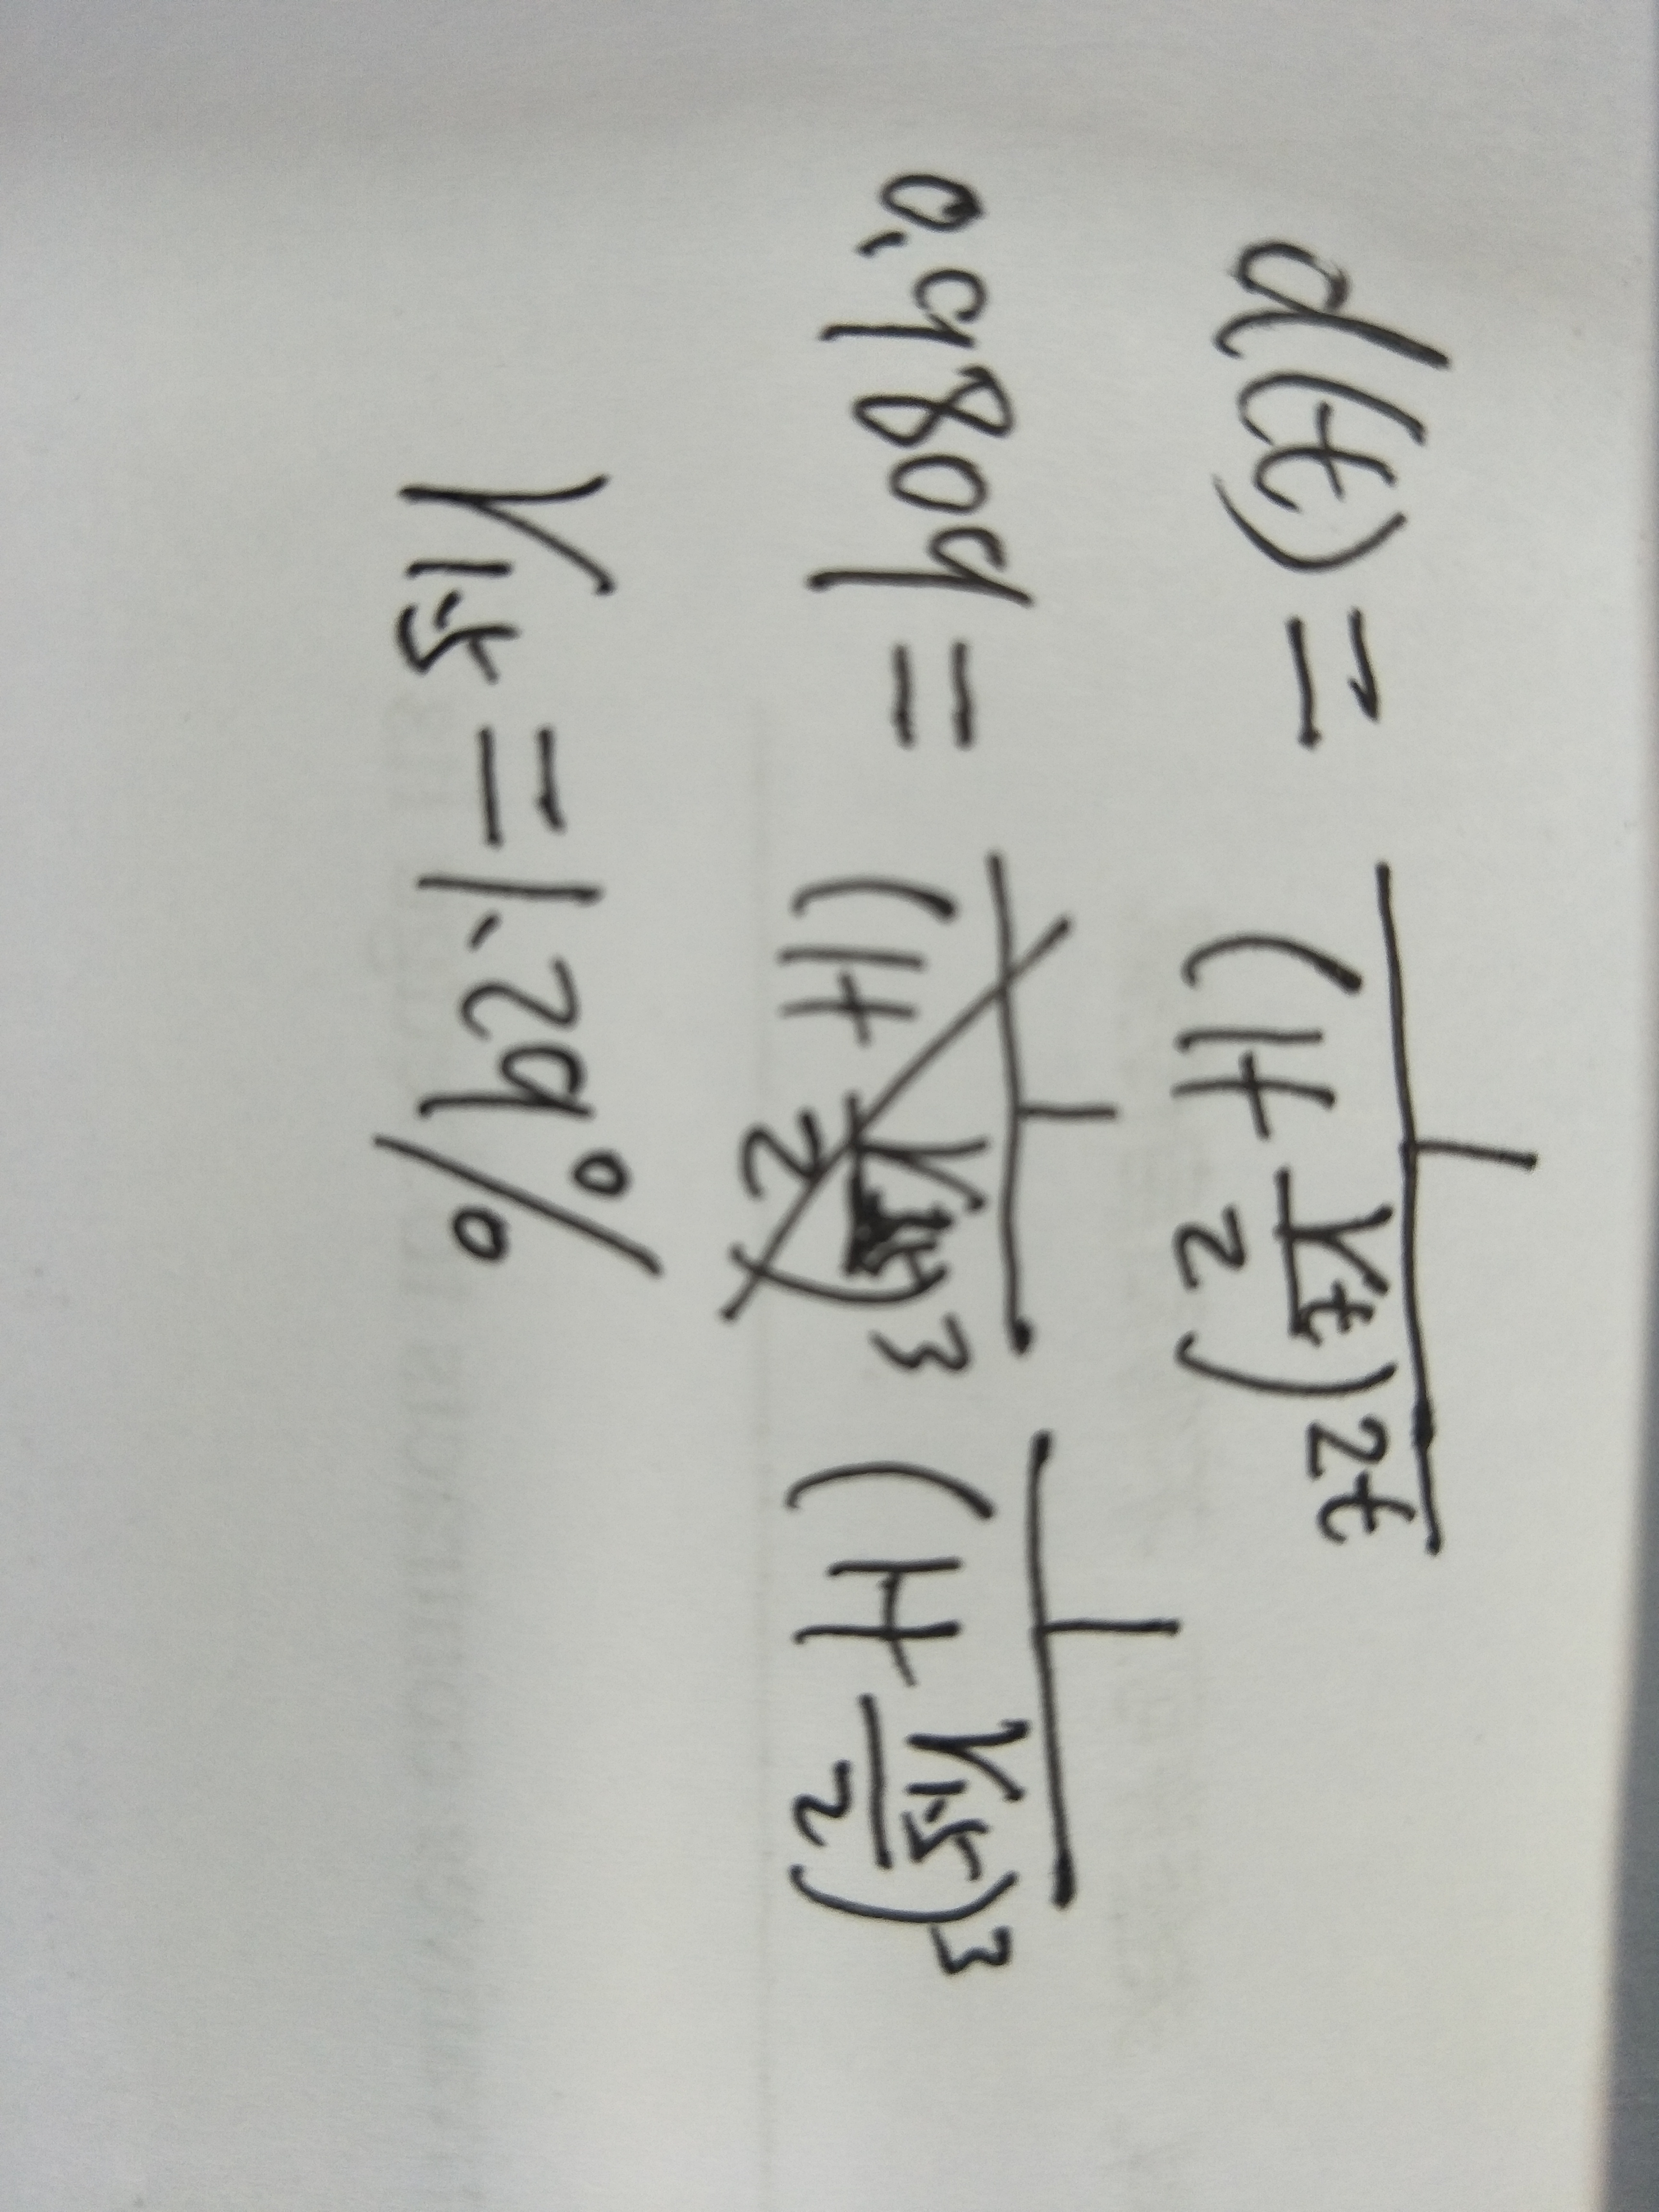 d(t) = 1 / (1 + y_t / 2)^2t
0.9809 = 1 / (1 + / 2)^3 1 / (1 + y_1.5 / 2)^3
y_1.5 = 1.29%